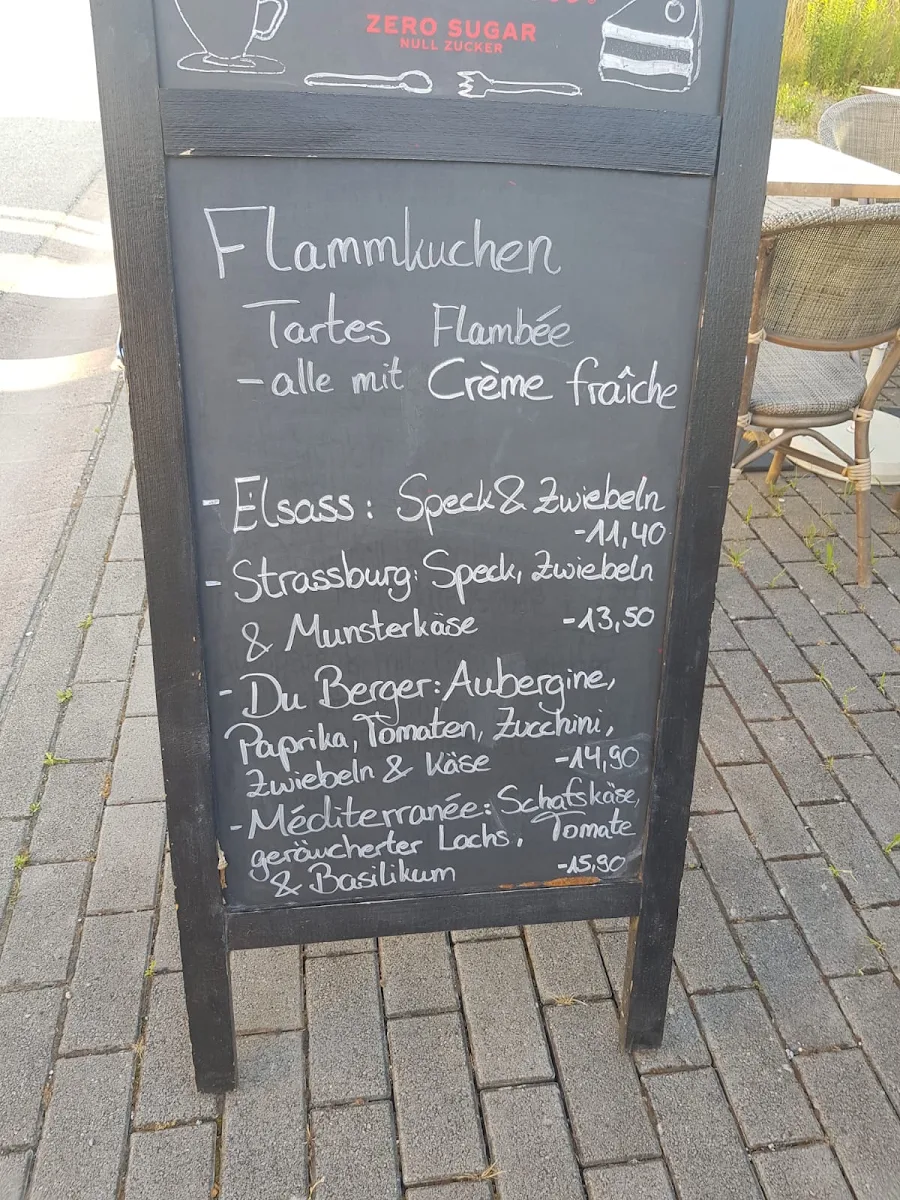 ZERO SUGAR
NULL ZUCKER
Flammkuchen
Tartes Flambée
- alle mit Crème fraîche
- Elsass: Speck & Zwiebeln
-11,40
- Strassburg: Speck, Zwiebeln
& Munsterkäse -13,50
- Du Berger: Aubergine,
Paprika, Tomaten, Zucchini,
Zwiebeln & Käse -14,90
- Méditerranée: Schafskäse,
geräucherter Lachs, Tomate
& Basilikum -15,90